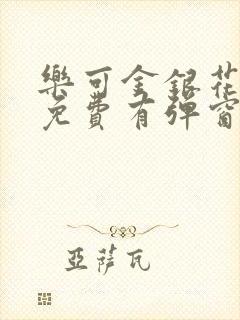 樂可金銀花
免費有彈窗
亞薩瓦